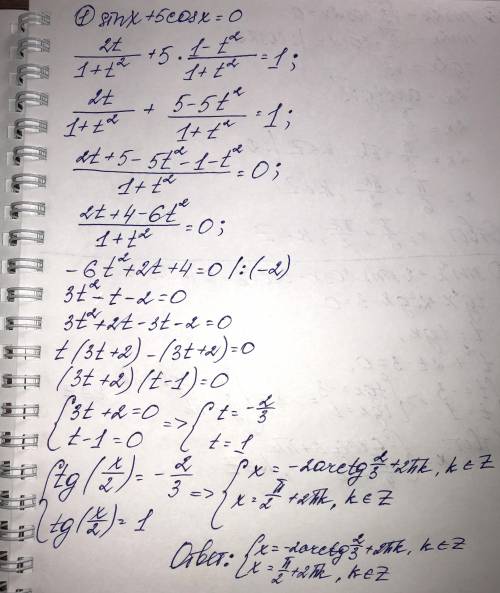 ① sinx+5cosx=0
2t/(1+t²) + 5·(1-t²)/(1+t²) = 1;
2t/(1+t²) + (5-5t²)/(1+t²) = 1;
(2t+5-5t²-1-t²)/(1+t²) = 0;
(2t+4-6t²)/(1+t²) = 0;
-6t²+2t+4=0 /:(-2)
3t²-t-2=0
3t²+2t-3t-2=0
t(3t+2)-(3t+2)=0
(3t+2)(t-1)=0
{3t+2=0 => {t=-2/3
t-1=0 t=1
{tg(x/2)=-2/3 => {x=-2arctg 2/3+2πk, k∈Z
tg(x/2)=1 x=π/2+2πk, k∈Z
Ответ: {x=-2arctg 2/3+2πk, k∈Z
x=π/2+2πk, k∈Z